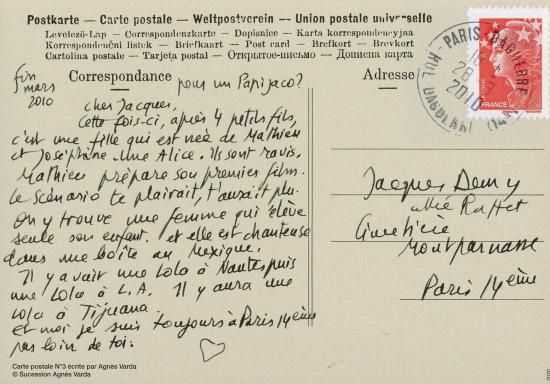 Postkarte – Carte postale – Weltpostverein – Union postale universelle
Levelező-Lap — Correspondenzkarte — Dopisnice — Karta korrespondencyjna
Korrespondenční listek — Briefkaart — Post card — Brefkort — Brevkort
Cartolina postale — Tarjeta postal — Открытое-письмо — Дописна карта
Correspondance
Adresse
fin
mars
2010
pour un Papijaco?
cher Jacques,
Cette fois-ci, après 4 petits fils,
c'est une fille qui est née de Mathieu
et Joséphine. Une Alice. Ils sont ravis.
Mathieu prépare son premier film.
Le scénario te plairait, t'aurait plu.
On y trouve une femme qui élève
seule son enfant. et elle est chanteuse
dans une boîte au Mexique.
Il y avait une Lola à Nantes puis
une Lola à L.A. Il y aura une
Lola à Tijuana.
Et moi je suis toujours à Paris 14ème
pas loin de toi.
Jacques Demy
allée Raffet
Cimetière
Montparnasse
Paris 14ème
PARIS DAGUERRE
28
2010
RUE DAGUERRE (14
FRANCE
Carte postale N°3 écrite par Agnès Varda
© Sucession Agnès Varda